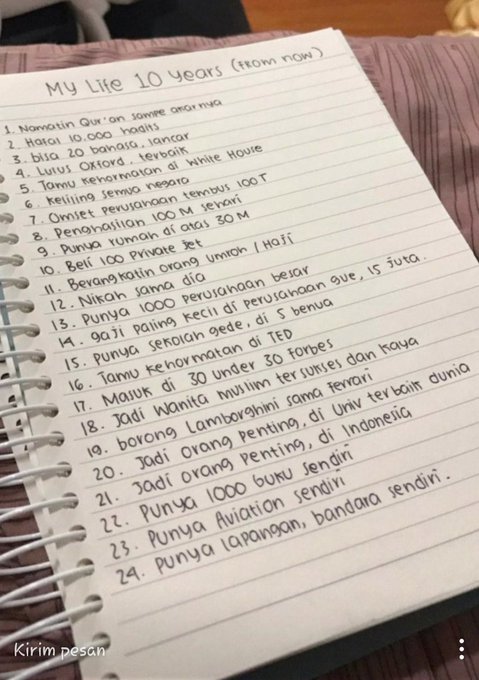 My Life 10 years (from now)
1. Namatin Qur'an sampe akarnya
2. Hafal 10.000 hadits
3. bisa 20 bahasa, lancar
4. Lulus Oxford, terbaik
5. Tamu kehormatan di White House
6. Keliling semua negara
7. Omset perusahaan tembus 100T
8. Penghasilan 100 M sehari
9. Punya rumah di atas 30 M
10. Beli 100 Private Jet
11. Berangkatin orang umroh / Haji
12. Nikah sama dia
13. Punya 1000 perusahaan besar
14. gaji paling kecil di perusahaan gue, 15 juta.
15. punya sekolah gede, di 5 benua
16. Tamu kehormatan di TED
17. Masuk di 30 under 30 Forbes
18. Jadi Wanita muslim tersukses dan kaya
19. borong Lamborghini sama Ferrari
20. Jadi orang penting, di Univ terbaik dunia
21. Jadi orang penting, di Indonesia
22. Punya 1000 buku sendiri
23. Punya Aviation sendiri
24. Punya lapangan, bandara sendiri.
Kirim pesan